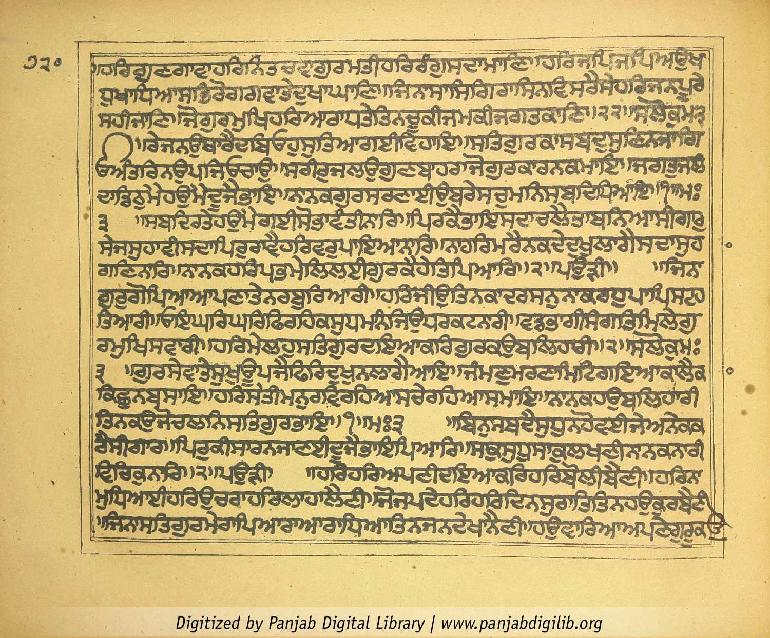 ੭੨੦
॥ਹਰਿਗੁਣਗਾਵਾਹਰਿਨਿਤਚਵਾਗੁਰਮਤੀਹਰਿਰੰਗੁਸਦਾਮਾਣਿ॥ਹਰਿਜਪਿਜਪਿਅਉਖ
ਧੁਖਾਧਿਆਸਭਿਰੋਗਗਵਾਤੇਦੁਖਾਘਾਣਿ॥ਜਿਨਾਸਾਸਿਗਿਰਾਸਿਨਵਿਸਰੈਸੇਹਰਿਜਨਪੂਰੇ
ਸਹੀਜਾਣਿ॥ਜੋਗੁਰਮੁਖਿਹਰਿਆਰਾਧਤੇਤਿਨਚੂਕੀਜਮਕੀਜਗਤਕਾਣਿ॥੨੨॥ਸਲੋਕੁਮਃ੩
॥ਰੇਜਨਉਥਾਰੈਦਬਿਓਹੁਸੁਤਿਆਗਈਵਿਹਾਇ॥ਸਤਿਗੁਰਕਾਸਬਦੁਸੁਣਿਨਜਾਗਿ
ਓਅੰਤਰਿਨਉਪਜਿਓਚਾਉ॥ਸਰੀਰੁਜਲਉਗੁਣਬਾਹਰਾਜੋਗੁਰਕਾਰਨਕਮਾਇ॥ਜਗਤੁਜਲੰ
ਦਾਡਿਠੁਮੈਹਉਮੈਦੂਜੈਭਾਇ॥ਨਾਨਕਗੁਰਸਰਣਾਈਉਬਰੇਸਚੁਮਨਿਸਬਦਿਧਿਆਇ॥੧॥ਮਃ
੩ ॥ਸਬਦਿਰਤੇਹਉਮੈਗਈਸੋਭਾਵੰਤੀਨਾਰਿ॥ਪਿਰਕੈਭਾਇਸਦਾਚਲੈਤਾਬਨਿਆਸੀਗਾਰੁ
ਸੇਜਸੁਹਾਵੀਸਦਾਪਿਰੁਰਾਵੈਹਰਿਵਰੁਪਾਇਆਨਾਰਿ॥ਨਾਹਰਿਮਰੈਨਕਦੇਦੁਖੁਲਾਗੈਸਦਾਸੁਹ
ਾਗਣਿਨਾਰਿ॥ਨਾਨਕਹਰਿਪ੍ਰਭਮੇਲਿਲਈਗੁਰਕੈਹੇਤਿਪਿਆਰਿ॥੨॥ਪਉੜੀ॥ ॥ਜਿਨ
ਗੁਰੁਗੋਪਿਆਆਪਣਾਤੇਨਰਬੁਰਿਆਰੀ॥ਹਰਿਜੀਉਤਿਨਕਾਦਰਸਨੁਨਾਕਰਹੁਪਾਪਿਸਟਹ
ਤਿਆਰੀ॥ਓਇਘਰਿਘਰਿਫਿਰਹਿਕਸੁਧਮਨਿਜਿਉਧਰਕਟਨਾਰੀ॥ਵਡਭਾਗੀਸੰਗਤਿਮਿਲੇਗੁ
ਰਮੁਖਿਸਵਾਰੀ॥ਹਰਿਮੇਲਹੁਸਤਿਗੁਰਦਇਆਕਰਿਗੁਰਕਉਬਲਿਹਾਰੀ॥੨॥ਸਲੋਕੁਮਃ
੩ ॥ਗੁਰਸੇਵਾਤੇਸੁਖੁਊਪਜੈਫਿਰਿਦੁਖੁਨਲਗੈਆਇ॥ਜੰਮਣੁਮਰਣਾਮਿਟਿਗਇਆਕਾਲੈਕਾ
ਕਿਛੁਨਬਸਾਇ॥ਹਰਿਸੇਤੀਮਨੁਰਵਿਰਹਿਆਸਚੇਰਹਿਆਸਮਾਇ॥ਨਾਨਕਹਉਬਲਿਹਾਰੀ
ਤਿੰਨਕਉਜੋਚਲਨਿਸਤਿਗੁਰਭਾਇ॥੧॥ਮਃ੩ ॥ਬਿਨੁਸਬਦੈਸੁਧੁਨਹੋਵਈਜੇਅਨੇਕਕ
ਰੈਸੀਗਾਰ॥ਪਿਰਕੀਸਾਰਨਜਾਣਈਦੂਜੈਭਾਇਪਿਆਰੁ॥ਸਾਕੁਸੁਧਸਾਕੁਲਖਣੀਨਾਨਕਨਾਰੀ
ਵਿਚਿਕੁਨਾਰਿ॥੨॥ਪਉੜੀ ॥ਹਰਿਹਰਿਅਪਣੀਦਇਆਕਰਿਹਰਿਬੋਲੀਬੈਣੀ॥ਹਰਿਨ
ਾਮੁਧਿਆਈਹਰਿਉਚਰਾਹਰਿਲਾਹਾਲੈਣੀ॥ਜੋਜਪਦੇਹਰਿਹਰਿਦਿਨਸੁਰਾਤਿਤਿਨਹਉਕੁਰਬੈਣੀ
॥ਜਿਨਾਸਤਿਗੁਰੁਮੇਰਾਪਿਆਰਾਅਰਾਧਿਆਤਿਨਜਨਦੇਖਾਨੈਣੀ॥ਹਉਵਾਰਿਆਅਪਣੇਗੁਰੂਕਉ
Digitized by Panjab Digital Library | www.panjabdigilib.org